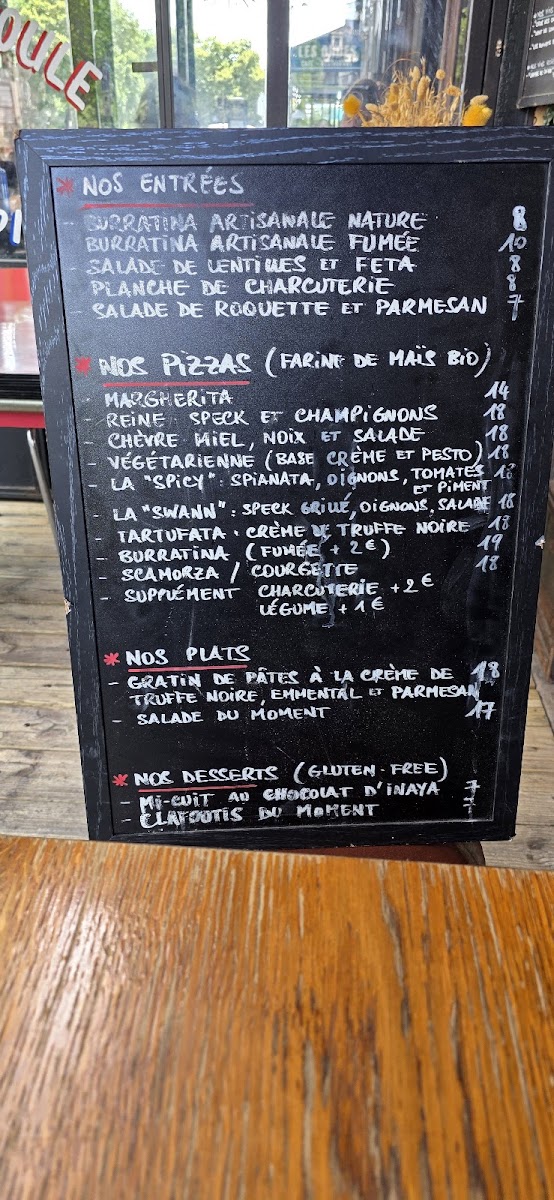 OULE
* NOS ENTRÉES
- BURRATINA ARTISANALE NATURE 8
- BURRATINA ARTISANALE FUMÉE 10
- SALADE DE LENTILLES ET FETA 8
- PLANCHE DE CHARCUTERIE 8
- SALADE DE ROQUETTE ET PARMESAN 7
* NOS PIZZAS (FARINE DE MAÏS BIO)
- MARGHERITA 14
- REINE : SPECK ET CHAMPIGNONS 18
- CHÈVRE MIEL, NOIX ET SALADE 18
- VÉGÉTARIENNE (BASE CRÈME ET PESTO) 18
- LA "SPICY" : SPIANATA, OIGNONS, TOMATES 18
ET PIMENT
- LA "SWANN" : SPECK GRILLÉ, OIGNONS, SALADE 18
- TARTUFATA : CRÈME DE TRUFFE NOIRE 18
- BURRATINA (FUMÉE + 2€) 19
- SCAMORZA / COURGETTE 18
- SUPPLÉMENT CHARCUTERIE +2€
LÉGUME +1€
* NOS PLATS
- GRATIN DE PÂTES À LA CRÈME DE 18
TRUFFE NOIRE, EMMENTAL ET PARMESAN
- SALADE DU MOMENT 17
* NOS DESSERTS (GLUTEN-FREE)
- MI-CUIT AU CHOCOLAT D'INAYA 7
- CLAFOUTIS DU MOMENT 7